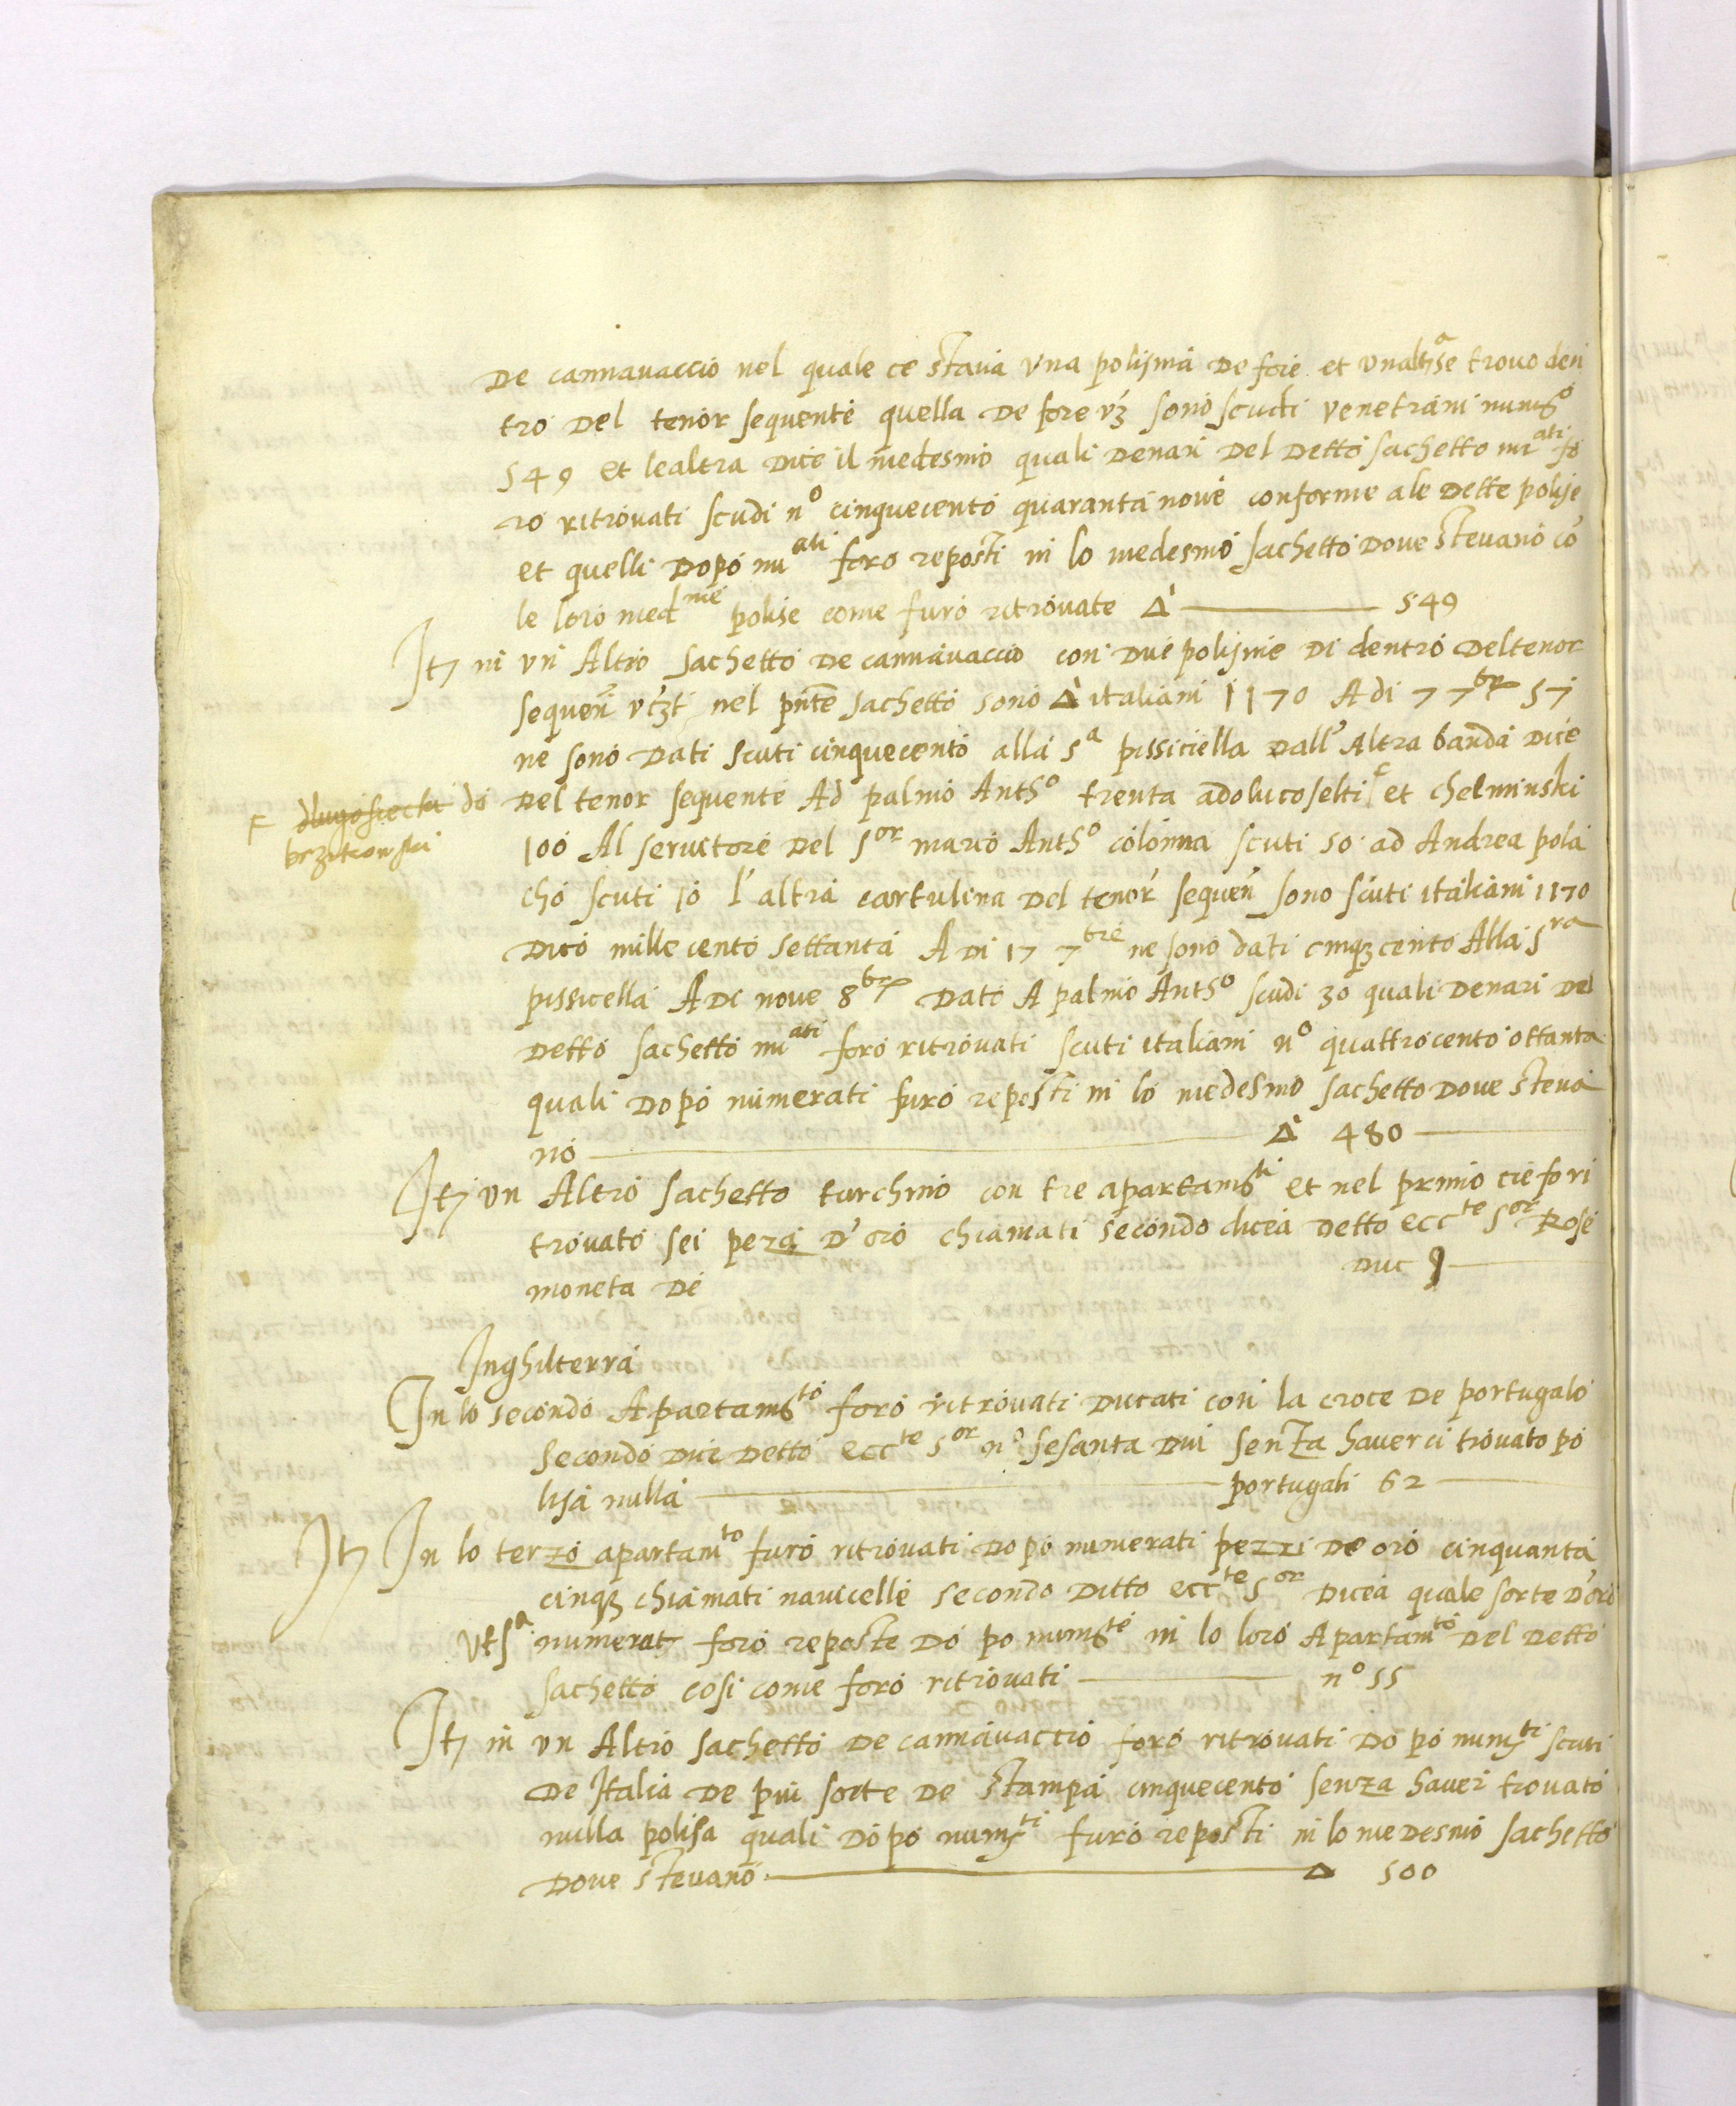 De cannavaccio nel quale ce stava una polisina de fore et unaltra se trovo den
tro del tenor sequente quella de fore vz sono scuti venetiani numro
549 et lealtra dice il medesmo quali denari del detto sachetto nu ati fo
ro ritrovati scudi no cinquecento quaranta nove conforme ale dette polise
et quelli dopo nu ati foro reposti in lo medesmo sachetto dove stevano co
le loro medme polise come furo ritrovate Δ 549
Itz in un Altro sachetto de cannavaccio con due polisine di dentro del tenor
sequen nel pnte sachetto sono Δ italiani 1170 Adi 7 7bre 57
ne sono dati scuti cinquecento alla Sa pissiciella dall'Altra banda dice
F dlugosiecki do
brzitwonski
del tenor sequente Ad palmo Antho trenta adolucoselti F et chelminski
100 Al servitore del Sor marco Antho colonna scuti 50 ad Andrea pola
cho scuti 10 l'altra cartulina del tenor sequen sono scuti italiani 1170
dico mille cento settanta A di 17 7bre ne sono dati cinqz cento Alla Sra
pissicella A di nove 8bre dati A palmo Antho scudi 30 quali denari del
detto sachetto nu ati foro ritrovati scuti italiani no quattrocento ottanta
quali dopo numerati furo reposti in lo medesmo sachetto dove steva
no Δ 480
Itz un Altro sachetto turchino con tre apartamti et nel primo cie fo ri
trovato sei pezzi d'oro chiamati secondo dicea detto eccte Sor Rose
moneta de duc 9
Inghilterra
In lo secondo Apartamto foro ritrovati ducati con la croce de portugalo
secondo dice detto eccte Sor no sesanta dui senza haverci trovato po
lisa nulla portugali 62
Itz In lo terzo apartamto furo ritrovati dopo numerati pezzi de oro cinquanta
cinqz chiamati navicelle secondo ditto eccte Sor dicea quale sorte d'oro
ut sa numeratz foro reposte do po numte in lo loro Apartamto del detto
sachetto cosi come foro ritrovati no 55
Itz in un Altro sachetto de cannavaccio foro ritrovati do po numti scuti
de Italia de piu sorte de stampa cinquecento senza haver trovato
nulla polisa quali dopo numti furo reposti in lo medesmo sachetto
dove stevano Δ 500